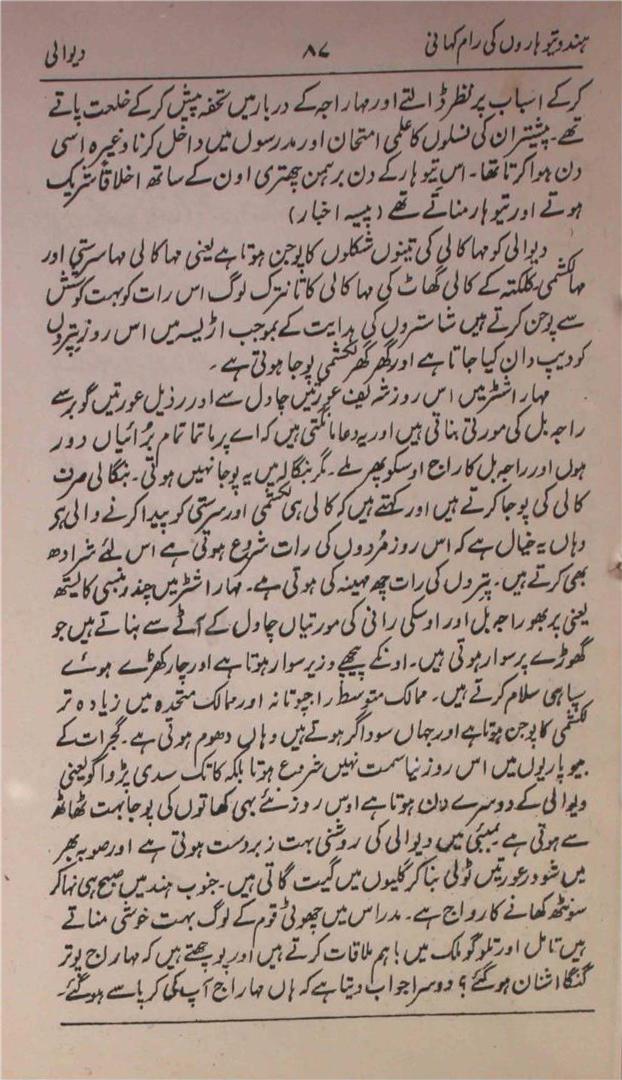 ہندو تیوہاروں کی رام کہانی ۸۷ دیوالی
کرکے اسباب پر نظر ڈالتے اور مہاراجہ کے دربار میں تحفہ پیش کرکے خلعت پاتے
تھے۔ پیشتر ان کی نسلوں کا علمی امتحان اور مدرسوں میں داخل کرنا وغیرہ اسی
دن ہوا کرتا تھا۔ اس تیوہار کے دن برہمن چھتری اون کے ساتھ اخلاقاً شریک
ہوتے اور تیوہار مناتے تھے (پیسہ اخبار)
دیوالی کو مہاکالی کی تینوں شکلوں کا پوجن ہوتا ہے یعنی مہاکالی مہا سرستی اور
مہالکشمی۔ کلکتہ کے کالی گھاٹ کی مہاکالی کا تانترک لوگ اس رات کو بہت کوشش
سے پوجن کرتے ہیں شاستروں کی ہدایت کے بموجب اڑیسہ میں اس روز پتروں
کو دیپ دان کیا جاتا ہے اور گھر گھر لکشمی پوجا ہوتی ہے۔
مہاراشٹر میں اس روز شریف عورتیں چاول سے اور رذیل عورتیں گوبر سے
راجہ بل کی مورتی بناتی ہیں اور یہ دعا مانگتی ہیں کہ اے پرماتما تمام برائیاں دور
ہوں اور راجہ بل کا راج اوسکو پھر ملے۔ مگر بنگالہ میں یہ پوجا نہیں ہوتی۔ بنگالی صرف
کالی کی پوجا کرتے ہیں اور کہتے ہیں کہ کالی ہی لکشمی اور سرستی کو پیدا کرنے والی ہی
وہاں یہ خیال ہے کہ اس روز مُردوں کی رات شروع ہوتی ہے اس لئے شرادھ
بھی کرتے ہیں۔ پتروں کی رات چھ مہینہ کی ہوتی ہے۔ مہاراشٹر میں چندر بنسی کایستھ
یعنی پربھو راجہ بل اور اوسکی رانی کی مورتیاں چاول کے آٹے سے بناتے ہیں جو
گھوڑے پر سوار ہوتی ہیں۔ اونکے پیچھے وزیر سوار ہوتا ہے اور چار کھڑے ہوئے
سپاہی سلام کرتے ہیں۔ ممالک متوسط راجپوتانہ اور ممالک متحدہ میں زیادہ تر
لکشمی کا پوجن ہوتا ہے اور جہاں سوداگر ہوتے ہیں وہاں دھوم ہوتی ہے۔ گجرات کے
بیوپاریوں میں اس روز نیا سمت نہیں شروع ہوتا بلکہ کاتک سدی پڑوا کو یعنی
دیوالی کے دوسرے دن ہوتا ہے اوس روز نئے بہی کھاتوں کی پوجا بہت ٹھاٹھ
سے ہوتی ہے بمبئی میں دیوالی کی روشنی بہت زبردست ہوتی ہے اور صوبہ بھر
میں شودر عورتیں ٹولی بنا کر گلیوں میں گیت گاتی ہیں۔ جنوب ہند میں صبح ہی نہا کر
سونٹھ کھانے کا رواج ہے۔ مدراس میں چھوٹی قوم کے لوگ بہت خوشی مناتے
ہیں تامل اور تلوگو ملک میں باہم ملاقات کرتے ہیں اور پوچھتے ہیں کہ مہاراج پوتر
گنگا اشنان ہوگئے؟ دوسرا جواب دیتا ہے کہ ہاں مہاراج آپ کی کرپا سے ہوگئے۔